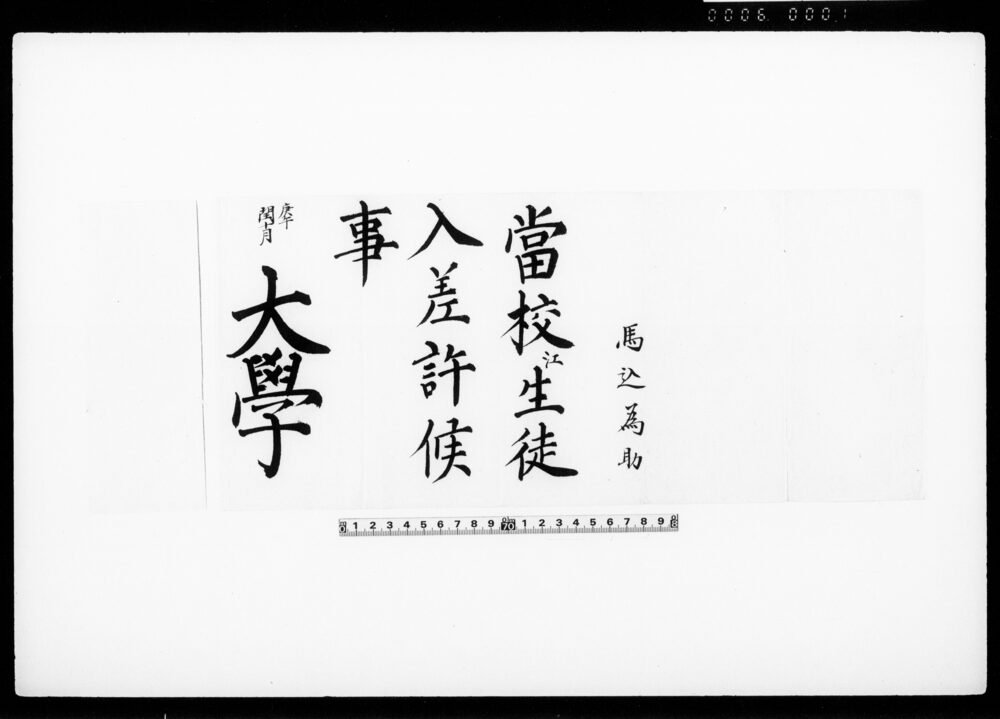 0006 0001
馬込為助
當校江生徒
入差許候
事
庚午
閏十月
大學
0 1 2 3 4 5 6 7 8 9 1 2 3 4 5 6 7 8 9